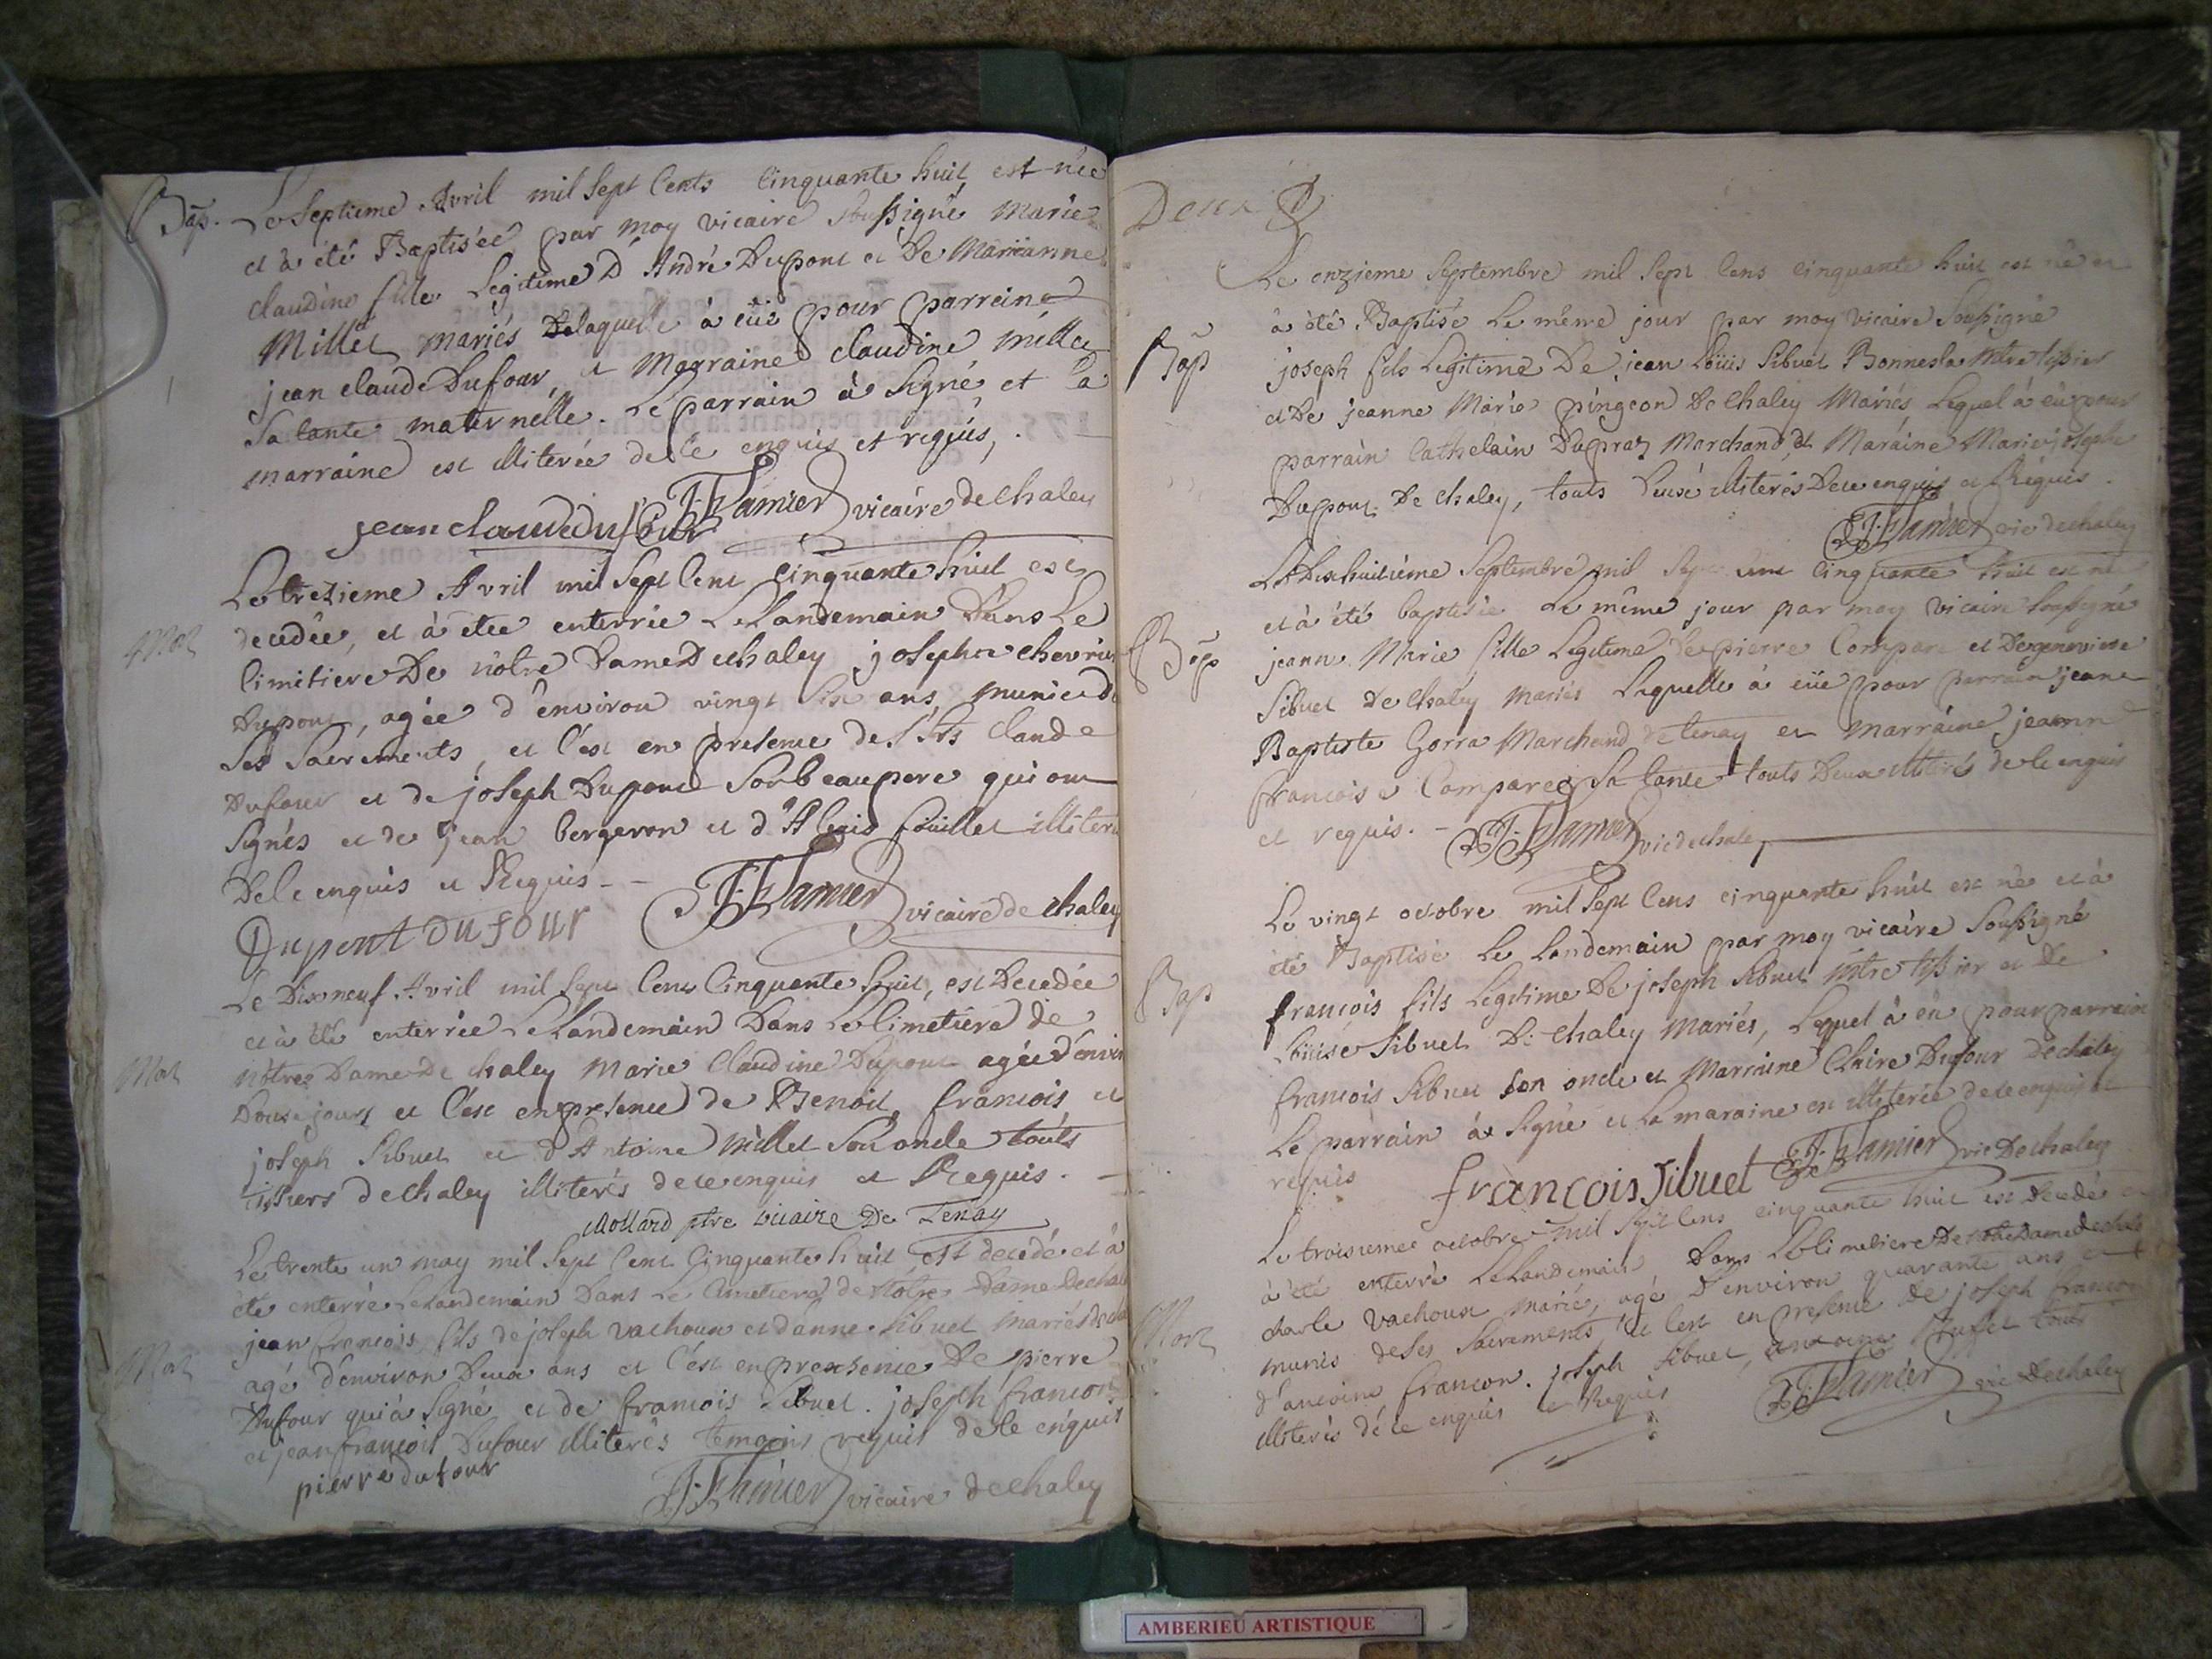 Bap. Le Septieme Avril mil Sept Cents Cinquante huit est née
et à été Baptisée par moy vicaire soussigné Marie
claudine fille Legitime D'André Dupont et De Marianne
Millet mariés Delaquelle à eüe pour parrein
jean claude Dufour, et Marraine claudine millet
Sa tante maternelle. Le parrain à Signé, et La
marraine est illiterée de Ce enquis et requis,
jean claude dufour J. Lamier vicaire de Chaley
Le treizieme Avril mil Sept Cent Cinquante huit est
Mor decedée, et à etée enterrée Le Landemain Dans Le
Cimitiere De nôtre Dame De chaley josephte chevrier
Dupont, agée d'environ vingt Six ans, munie de
Ses Sacrements, et C'est en presence de Srs Claude
Dufour et de joseph Dupont Son beaupere qui ont
Signés et de jean bergeron et d'Alexis foüillet illiteré
De Ce enquis et Requis
Dupont Dufour J. Lamier vicaire de chaley
Le Dixneuf Avril mil Sept Cent Cinquante huit, est Decedée
et à été enterrée Le Landemain Dans Le Cimetiere de
Mor nôtre Dame De chaley Marie Claudine Dupont agée d'envir
Douse jours et C'est en presence de Benoit, francois et
joseph Sibuet et d'Antoine Millet Son oncle touts
tissiers de Chaley illiterés de ce enquis et Requis.
Mollard ptre vicaire De Tenay
Le trente un may mil Sept Cent Cinquante huit est decedé et à
été enterré Le Landemain Dans Le Cimetiere de Nôtre Dame De chal
jean francois fils de joseph vachoux et d'anne Sibuet Mariés De cha
Mor agé d'environ Deux ans et C'est en presence De pierre
Dufour qui à Signé et de francois Sibuet. joseph francon
et jean francois Dufour illiterés temoins requis de Ce enquis
pierre dufour J. Lamier vicaire de Chaley
Deux
Le onzieme Septembre mil Sept Cens Cinquante huit est né et
à été Baptisé Le même jour par moy vicaire Soussigné
Bap joseph fils Legitime De jean Loüis Sibuet Bonnesla mtre tissier
et De jeanne Marie pingeon De Chaley Mariés Lequel à eü pour
parrain Cathelain Dupraz Marchand, et Maraine Marie josephe
Dupont De Chaley, touts Deux illiterés De ce enquis et Réquis.
J. Lamier vic de chaley
Le Dixhuitième Septembre mil Sept Cent Cinquante huit est né
et à été baptisée Le même jour par moy vicaire Soussigné
Bap jeann Marie fille Legitime de pierre Compare et De genevieve
Sibuet de Chaley mariés Laquelle à eüe pour parrain jeane
Baptiste Gorra Marchand de tenay et marraine jeanne
francoise Comparee Sa tante touts Deux illiterés de Ce enquis
et requis. J. Lamier vic de chaley
Le vingt octobre mil Sept Cens Cinquante huit est né et à
été Baptisé Le Landemain par moy vicaire Soussigné
Bap francois fils Legitime De joseph Sibuet mtre tissier et De
Loüise Sibuet De Chaley Mariés, Lequel à eü pour parrain
francois Sibuet Son oncle et Marraine Claire Dufour de chaley
Le parrain à Signé et La maraine est illiterée de ce enquis et
requis francois Sibuet J. Lamier vic De Chaley
Le troisieme octobre mil Sept Cens Cinquante huit est Decedé et
à été enterré Le Landemain Dans Le Cimetiere De notre Dame De chale
Mor charle vachoux marié, agé D'environ quarante ans et
munis de Ses Sacraments, et C'est en presence de joseph francon
d'antoine francon. joseph Sibuet, antoine Buffet touts
illiterés de ce enquis et Requis J. Lamier vic De Chaley
AMBERIEU ARTISTIQUE